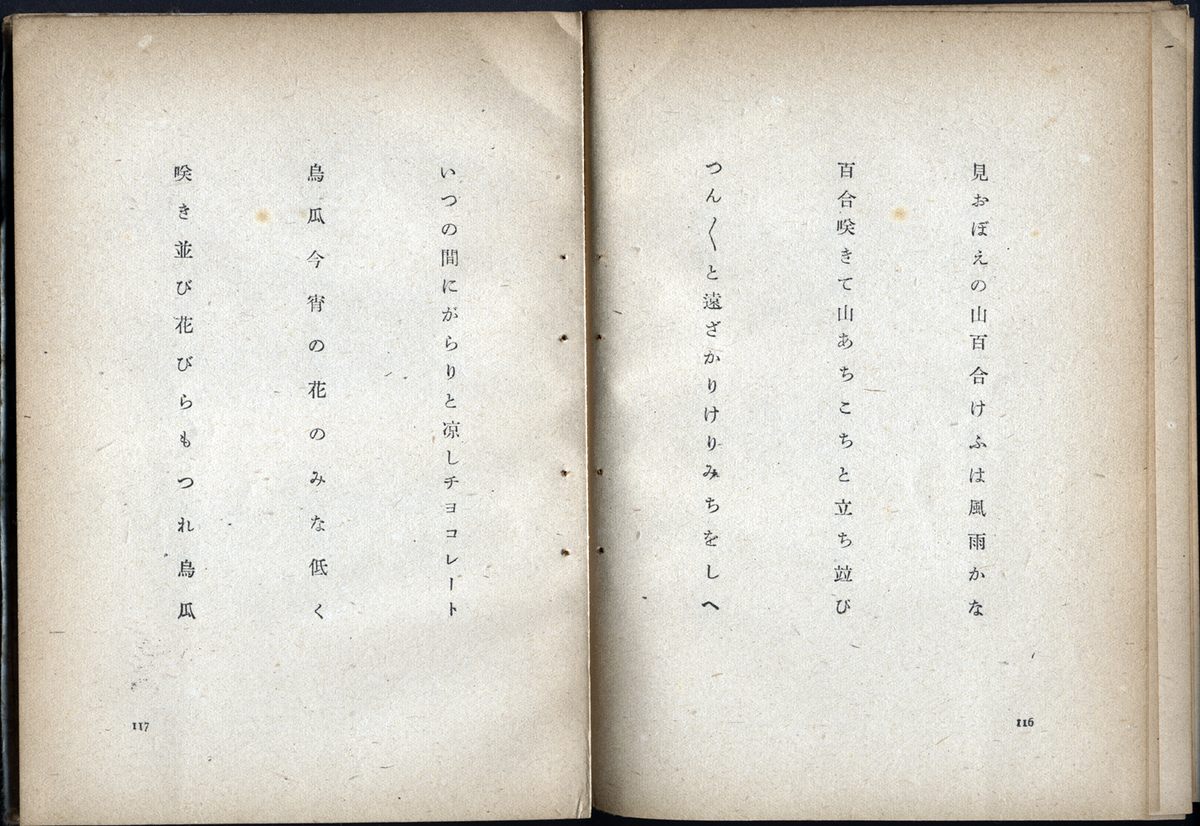 見おぼえの山百合けふは風雨かな
百合咲きて山あちこちと立ち竝び
つん〳〵と遠ざかりけりみちをしへ
116
いつの間にがらりと凉しチヨコレート
烏瓜今宵の花のみな低く
咲き並び花びらもつれ烏瓜
117